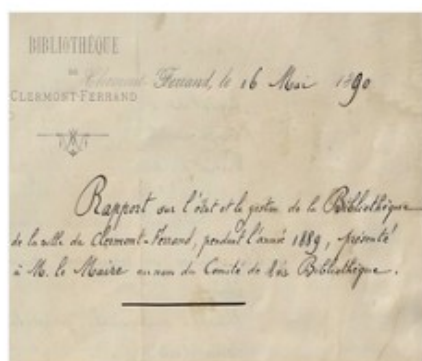 BIBLIOTHÈQUE
DE
CLERMONT-FERRAND
Clermont-Ferrand, le 16 Mai 1890
Rapport sur l'état et la gestion de la Bibliothèque
de la ville de Clermont-Ferrand, pendant l'année 1889, présenté
à M. le Maire au nom du Comité de la Bibliothèque.